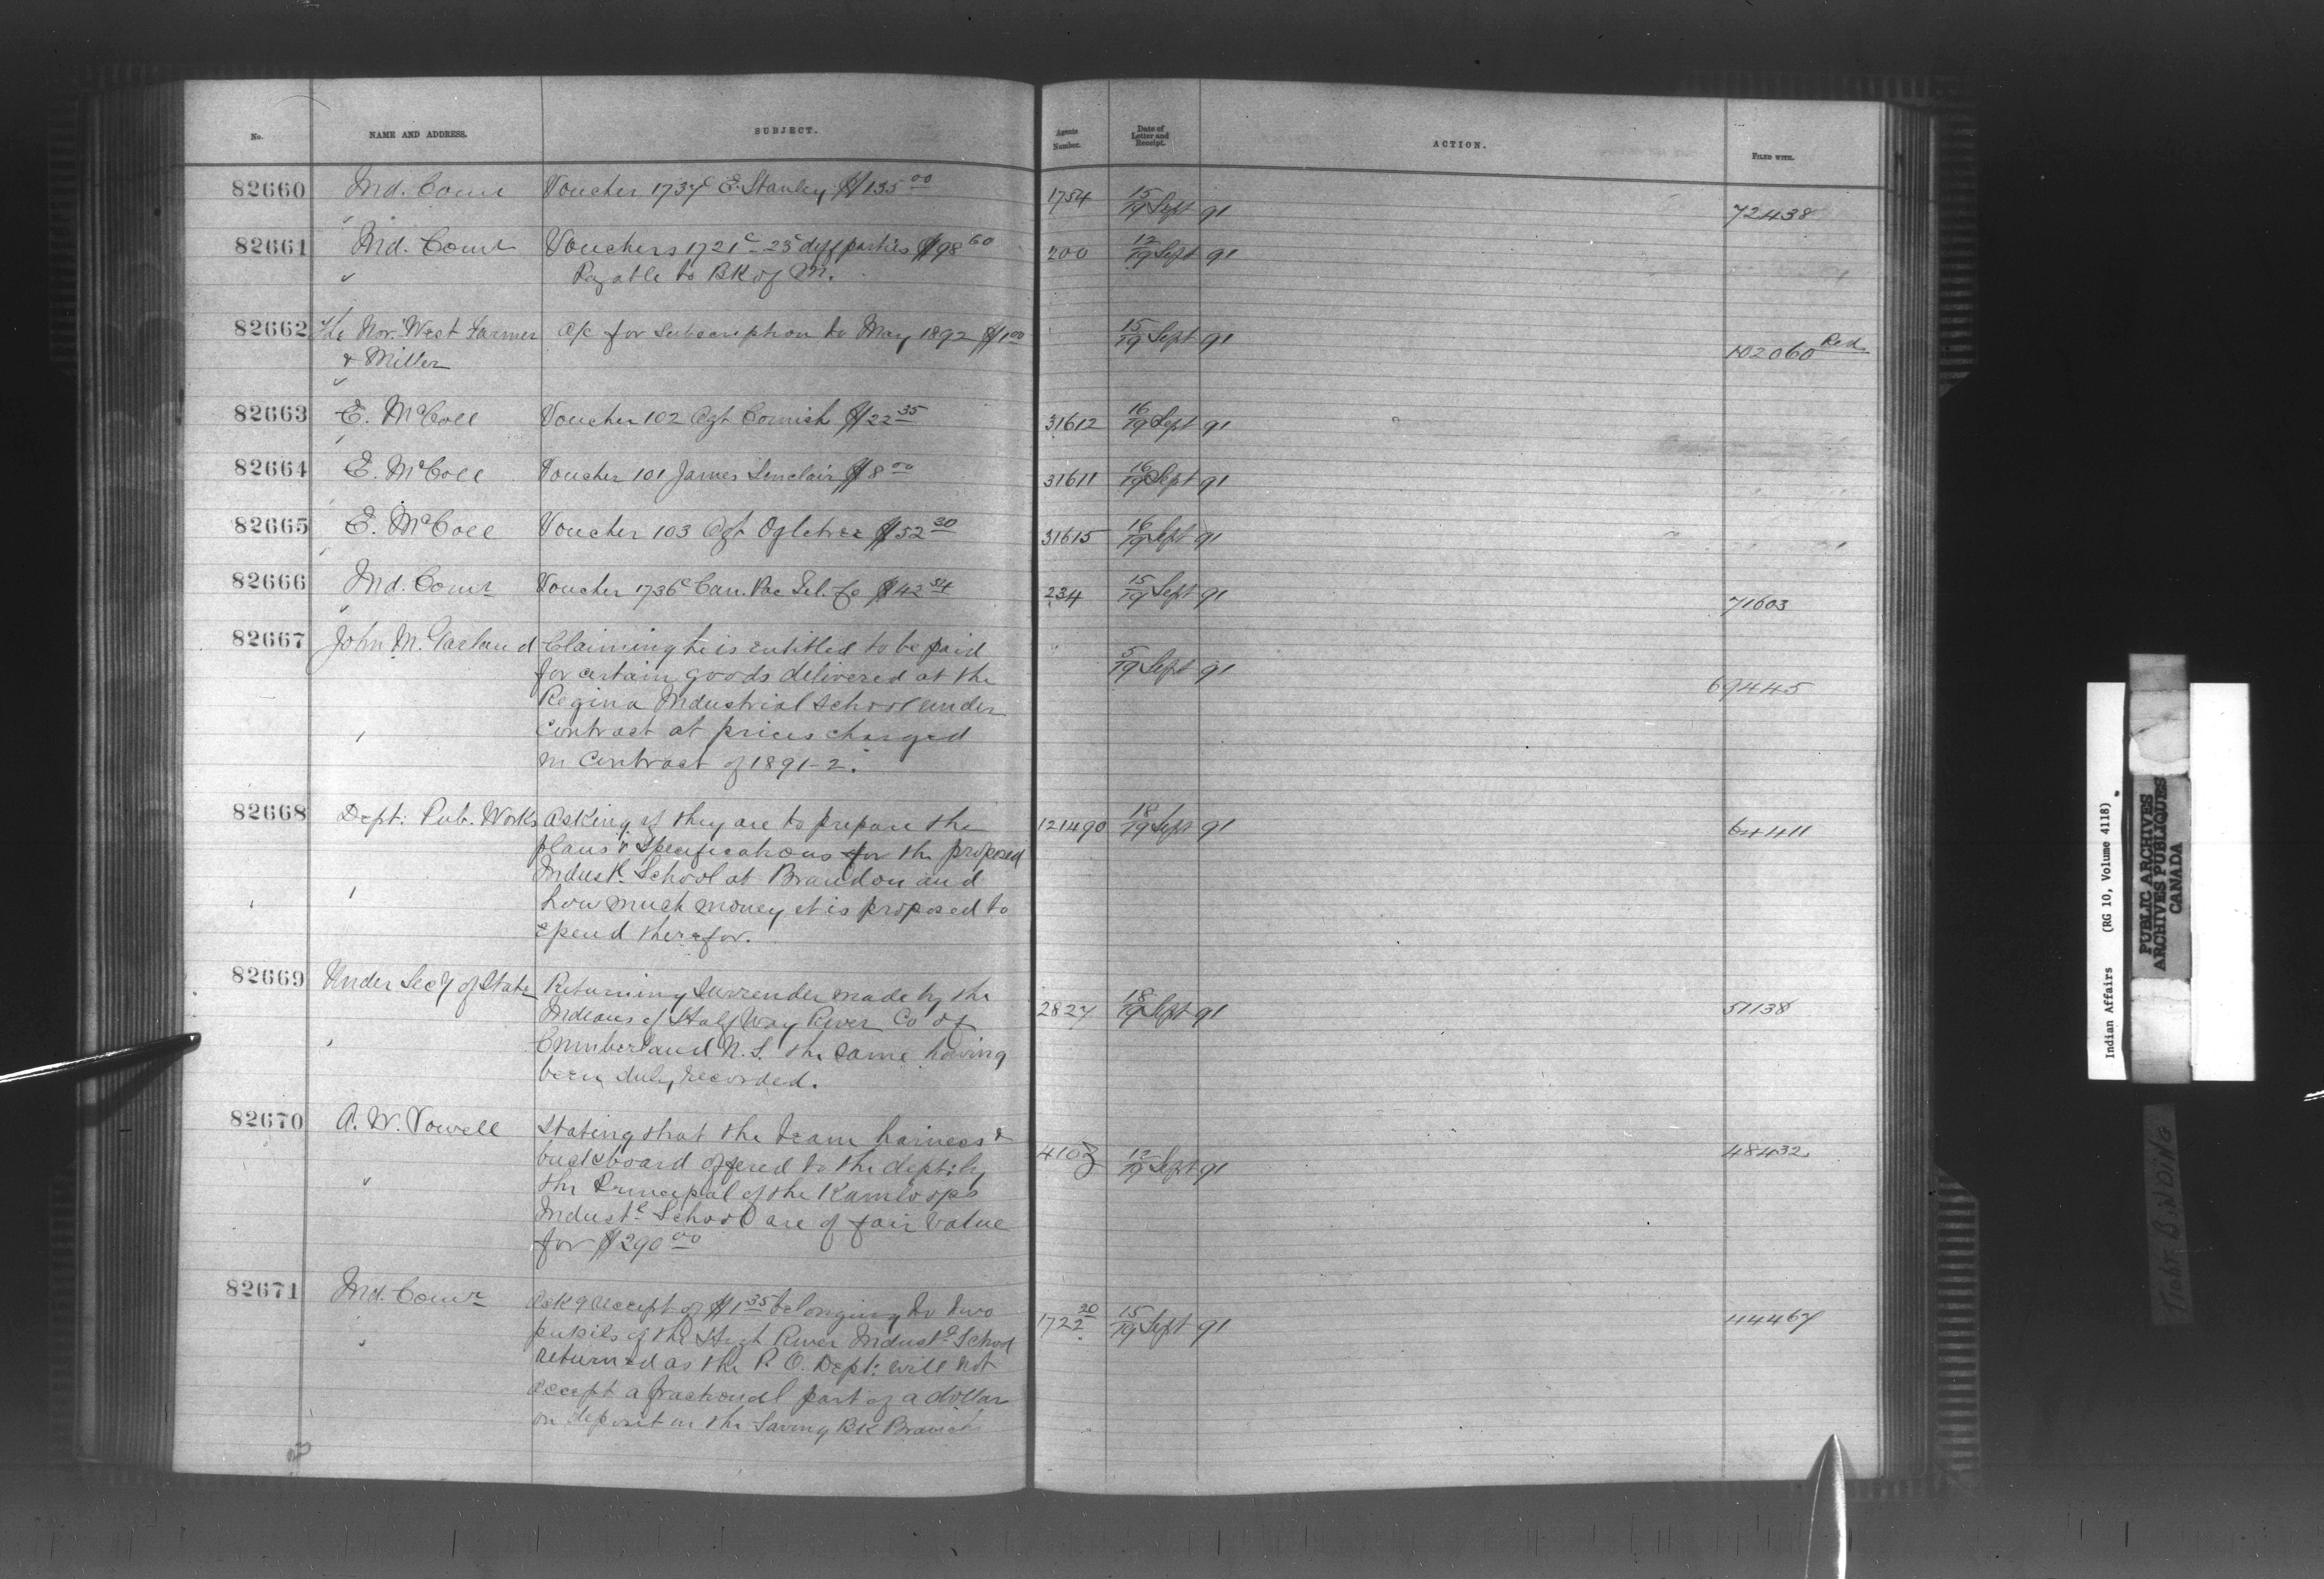 No. NAME AND ADDRESS. SUBJECT. Agents Number. Date of Letter and Receipt. ACTION. FILED WITH.
82660 Ind. Comr Voucher 1737c E. Stanley $135 00 1754 15/19 Sept 91 72438
82661 Ind. Comr Vouchers 1721c - 23c diff parties $98 60 200 12/19 Sept 91
" Payable to BK of M.
82662 The Nor. West Farmer a/c for subscription to May 1892 $1 00 15/19 Sept 91
& Miller 102060 Red
82663 E. McColl Voucher 102 Agt Cornish $22 35 31612 16/19 Sept 91
82664 E. McColl Voucher 101 James Sinclair $8 00 31611 16/19 Sept 91
82665 E. McColl Voucher 103 Agt Ogletree $52 30 31615 16/19 Sept 91
82666 Ind. Comr Voucher 1736c Can. Pac Tel. Co $42 54 234 15/19 Sept 91 71603
82667 John M. Garland Claiming he is entitled to be paid
for certain goods delivered at the 5/19 Sept 91 69445
Regina Industrial School under
contract at prices charged
in contract of 1891-2.
82668 Dept: Pub. Works Asking if they are to prepare the 121490 18/19 Sept 91 64411
plans & specifications for the proposed
Indust'l School at Brandon and
how much money it is proposed to
epend therefor.
82669 Under Sec'y of State Returning surrender made by the
Indians of Half Way River Co of 2827 18/19 Sept 91 51138
Cumberland N.S. the same having
been duly recorded.
82670 A. W. Vowell Stating that the team harness &
buckboard offered to the dept: by 4103 12/19 Sept 91 48432
the Principal of the Kamloops
Indust'l School are of fair value
for $290 00
82671 Ind. Comr Ask'g receipt of $1 35 belonging to two
pupils of the High River Indust'l School 1722 20/2 15/19 Sept 91 44467
returned as the P.O. Dept: will not
accept a fractional part of a dollar
on deposit in the Saving BK Branch
Indian Affairs (RG 10, Volume 4118)
PUBLIC ARCHIVES
ARCHIVES PUBLIQUES
CANADA
TIGHT BINDING